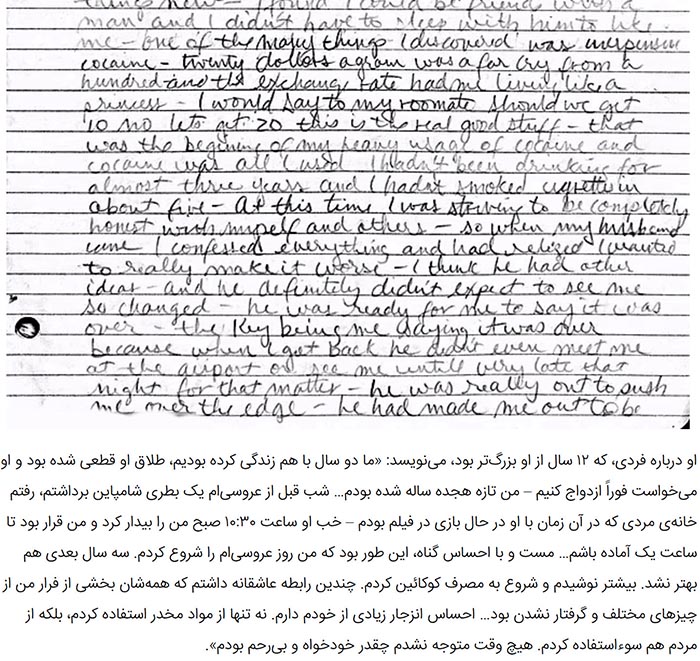 things new – I found I could be friend with a
man and I didn't have to sleep with him to like
me – one of the many things I discovered was inexpensive
cocaine – twenty dollars a gram was a far cry from a
hundred and the exchange rate had me living like a
princess – I would say to my roomate should we get
10 no lets get 20 this is the real good stuff – that
was the begining of my heavy usage of cocaine and
cocaine was all I used I hadn't been drinking for
almost three years and I hadn't smoked cigrettes in
about five – At this time I was striving to be completely
honest with myself and others – so when my husband
came I confessed everything and had relized I wanted
to really make it work – I think he had other
ideas – and he definitely didn't expect to see me
so changed – he was ready for me to say it was
over – the key being me saying it was over
because when I got back he didn't even meet me
at the airport or see me untill very late that
night for that matter – he was really out to push
me over the edge – he had made me out to be
او درباره فردی، که ۱۲ سال از او بزرگ‌تر بود، می‌نویسد: «ما دو سال با هم زندگی کرده بودیم، طلاق او قطعی شده بود و او
می‌خواست فوراً ازدواج کنیم – من تازه هجده ساله شده بودم... شب قبل از عروسی‌ام یک بطری شامپاین برداشتم، رفتم
خانه‌ی مردی که در آن زمان با او در حال بازی در فیلم بودم – خب او ساعت ۱۰:۳۰ صبح من را بیدار کرد و من قرار بود تا
ساعت یک آماده باشم... مست و با احساس گناه، این طور بود که من روز عروسی‌ام را شروع کردم. سه سال بعدی هم
بهتر نشد. بیشتر نوشیدم و شروع به مصرف کوکائین کردم. چندین رابطه عاشقانه داشتم که همه‌شان بخشی از فرار من از
چیزهای مختلف و گرفتار نشدن بود... احساس انزجار زیادی از خودم دارم. نه تنها از مواد مخدر استفاده کردم، بلکه از
مردم هم سوءاستفاده کردم. هیچ وقت متوجه نشدم چقدر خودخواه و بی‌رحم بودم».